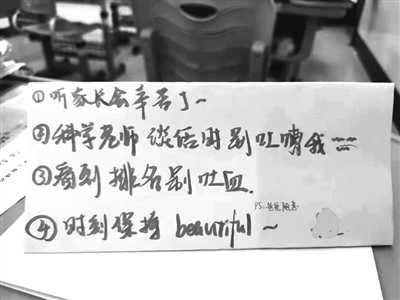 ①听家长会辛苦了~
②科学老师谈话时别吐嘈我……
③看到排名别吐血.
PS:爸爸随意
④时刻保持 beauriful~